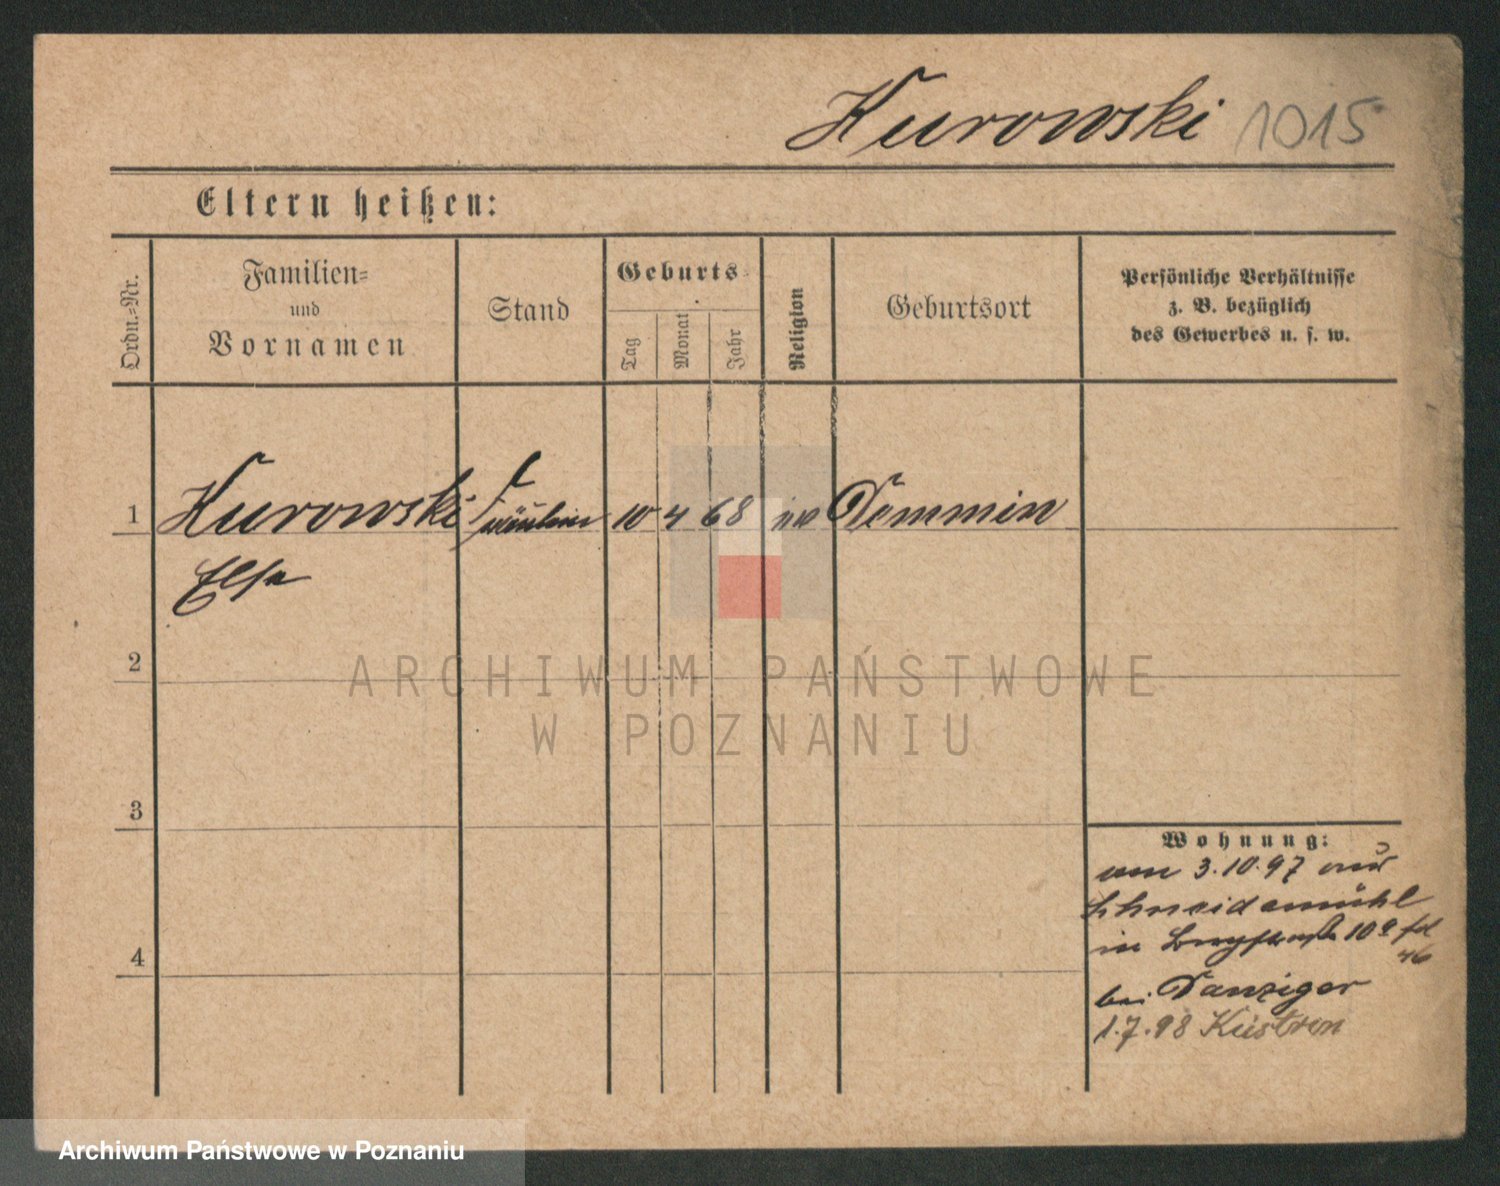 Kurowski 1015
Eltern heißen:
Ordn.-Nr.
Familien-
und
Vornamen
Stand
Geburts-
Tag
Monat
Jahr
Religion
Geburtsort
Persönliche Verhältnisse
z. B. bezüglich
des Gewerbes u. s. w.
1 Kurowski Fräulein 10 4 68 ev Demmin
Elsa
2
ARCHIWUM PAŃSTWOWE
W POZNANIU
3
Wohnung:
am 3.10.97 aus
Schneidemühl
in 10a
4
bei Danziger
1.7.98 Küstrin
Archiwum Państwowe w Poznaniu